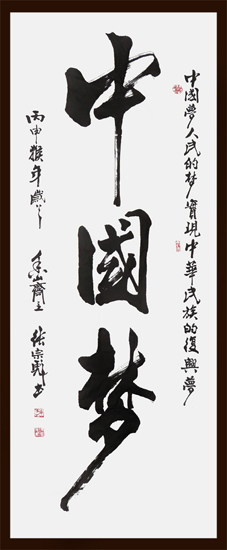 中國夢人民的梦實現中華民族的復興夢
中國梦
丙申猴年歲首
山齋主張宗彪书